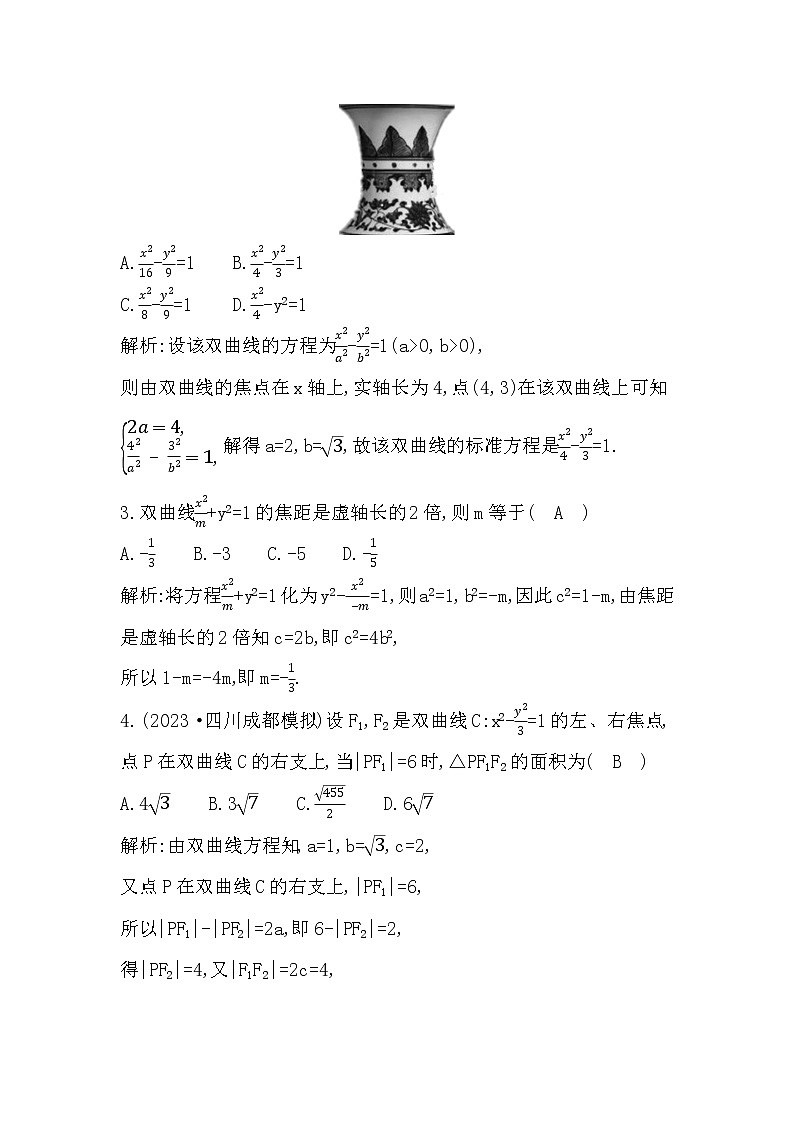 A.x²/16-y²/9=1 B.x²/4-y²/3=1
C.x²/8-y²/9=1 D.x²/4-y²=1
解析:设该双曲线的方程为x²/a²-y²/b²=1(a>0,b>0),
则由双曲线的焦点在x轴上,实轴长为4,点(4,3)在该双曲线上可知
{2a=4, 4²/a² - 3²/b²=1, 解得a=2,b=√3,故该双曲线的标准方程是x²/4-y²/3=1.
3.双曲线x²/m+y²=1的焦距是虚轴长的2倍,则m等于( A )
A.-1/3 B.-3 C.-5 D.-1/5
解析:将方程x²/m+y²=1化为y²-x²/-m=1,则a²=1,b²=-m,因此c²=1-m,由焦距
是虚轴长的2倍知c=2b,即c²=4b²,
所以1-m=-4m,即m=-1/3.
4.(2023·四川成都模拟)设F₁,F₂是双曲线C:x²-y²/3=1的左、右焦点,
点P在双曲线C的右支上,当|PF₁|=6时,△PF₁F₂的面积为( B )
A.4√3 B.3√7 C.√455/2 D.6√7
解析:由双曲线方程知,a=1,b=√3,c=2,
又点P在双曲线C的右支上,|PF₁|=6,
所以|PF₁|-|PF₂|=2a,即6-|PF₂|=2,
得|PF₂|=4,又|F₁F₂|=2c=4,